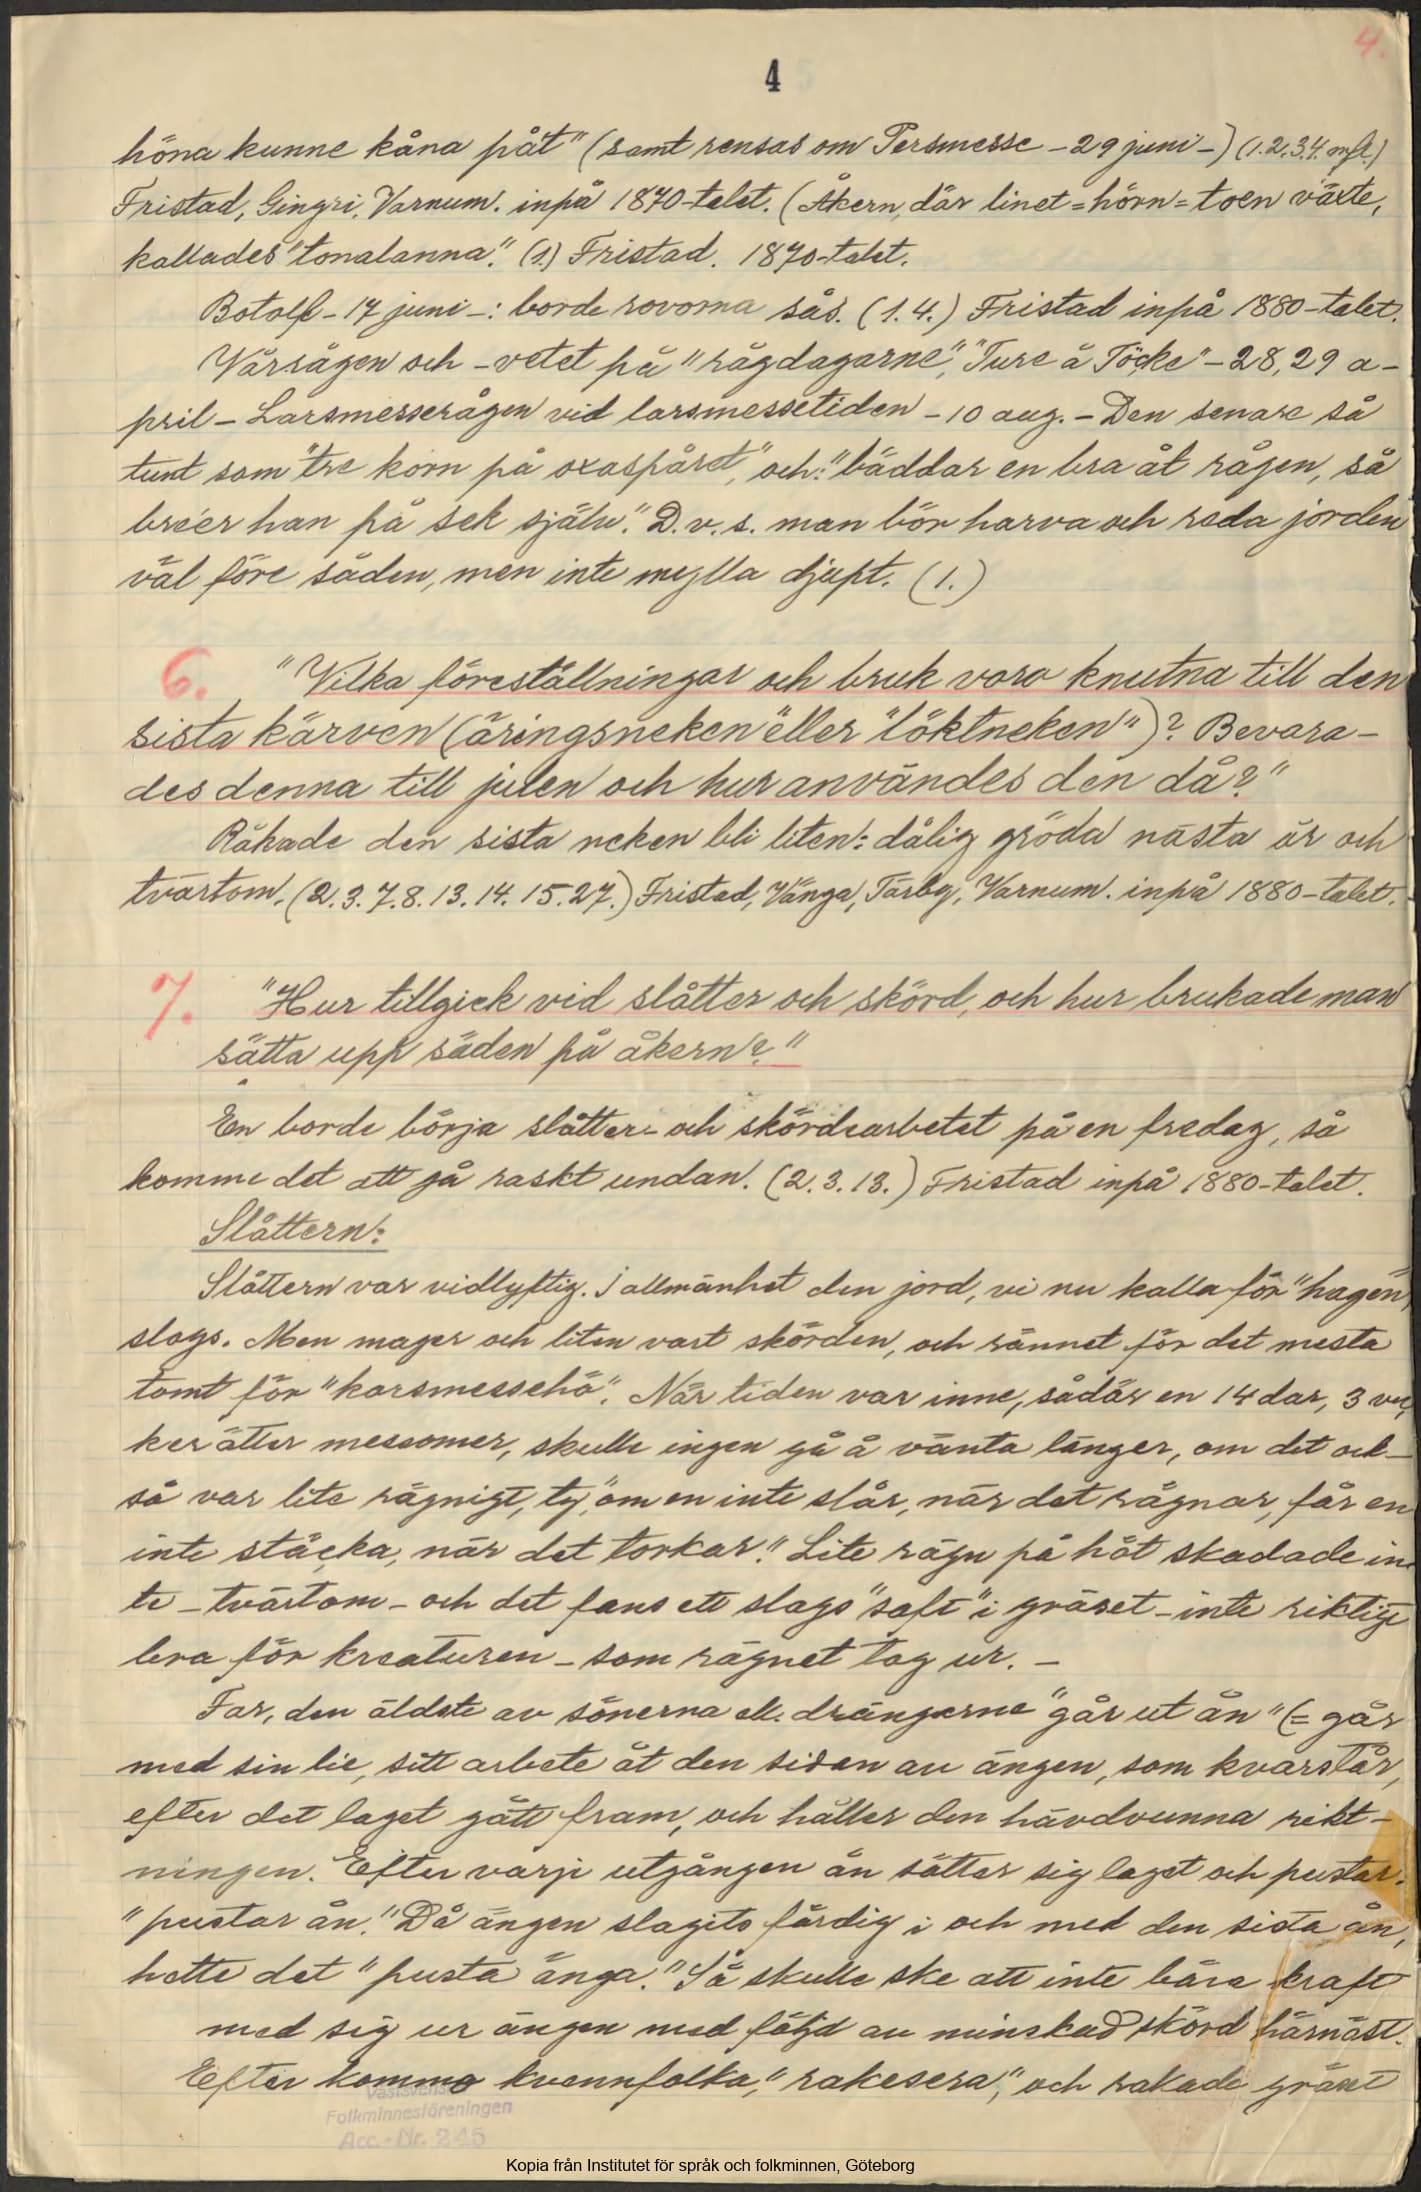 4
4.
höna kunne kåna påt" (samt rensas om Persmesse - 29 juni -) (1.2.3.4. mfl.)
Fristad, Gingri, Varnum. inpå 1870-talet. (Åkern, där linet = hörn = toen växte,
kallades "tonalanna". (1.) Fristad. 1870-talet.
Botolf - 17 juni -: borde rovorna sås. (1.4.) Fristad inpå 1880-talet.
Vårrågen och -vetet på "rågdagarne", "Ture å Töcke" - 28, 29 a-
pril - Larsmesserågen vid larsmessetiden - 10 aug. - Den senare så
tunt som "tre korn på oxaspåret", och: "bäddar en bra åt rågen, så
bre'er han på sek själv". D.v.s. man bör harva och reda jorden
väl före såden, men inte mylla djupt. (1.)
6. "Vilka föreställningar och bruk voro knutna till den
sista kärven (äringsneken" eller "löktneken")? Bevara-
des denna till julen och hur användes den då?"
Råkade den sista neken bli liten: dålig gröda nästa år och
tvärtom. (2.3.7.8.13.14.15.27.) Fristad, Vänga, Tärby, Varnum. inpå 1880-talet.
7. "Hur tillgick vid slåtter och skörd, och hur brukade man
sätta upp säden på åkern?"
En borde börja slåtter- och skördearbetet på en fredag, så
komme det att gå raskt undan. (2.3.13.) Fristad inpå 1880-talet.
Slåttern:
Slåttern var vidlyftig. I allmänhet den jord, vi nu kalla för "hagen",
slogs. Men mager och liten vart skörden, och rännet för det mesta
tomt för "korsmessehö". När tiden var inne, sådär en 14 dar, 3 vec
ker ätter messomer, skulle ingen gå å vänta länger, om det ock-
så var lite rägnigt, ty, "om en inte slår, när det rägnar, får en
inte stäcka, när det torkar." Lite rägn på höt skadade in-
te - tvärtom - och det fans ett slags "saft" i gräset - inte riktigt
bra för kreaturen - som rägnet tog ur. -
Far, den äldste av sönerna ell. drängarne "går ut ån" (= går
med sin lie, sitt arbete åt den sidan av ängen, som kvarstår,
efter det laget gått fram, och håller den hävdvunna rikt-
ningen. Efter varje utgången ån sätter sig laget och pustar.
"pustar ån." Då ängen slagits färdig i och med den sista ån,
hette det "pusta änga." Så skulle ske att inte bära kraft
med sig ur ängen med följd av minskad skörd härnäst.
Efter kommo kvennfolka, "rakesera", och rakade gräset
Västsvenska
Folkminnesföreningen
Acc.-Nr. 245
Kopia från Institutet för språk och folkminnen, Göteborg